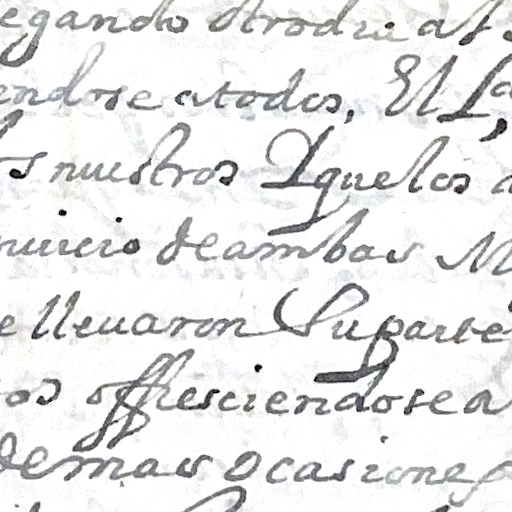 egando otro dia at
endose a todos, El Lᵈᵒ,
os nuestros Y que los a
nuicio de ambas M
e lleuaron Su parte
os offresciendose a
demas ocasiones